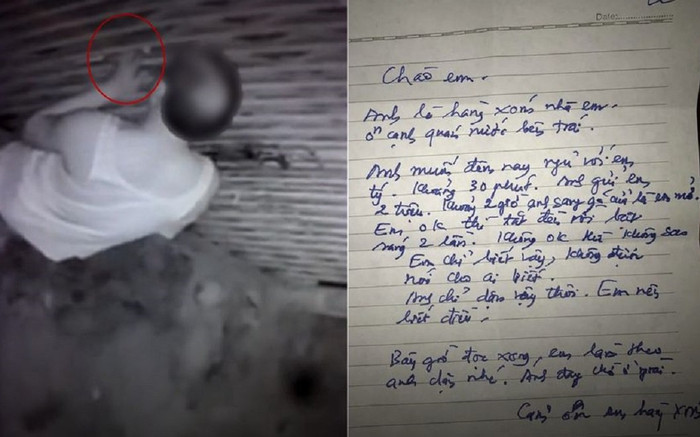 Date:
Chào em.
Anh là hàng xóm nhà em.
ở cạnh quán nước bên trái.
Anh muốn đêm nay ngủ với em
tý. Khoảng 30 phút. Anh gửi em
2 triệu. Khoảng 2 giờ anh sang gõ cửa là em mở.
Em ok thì tắt đèn rồi bật
sáng 2 lần. Không ok thì không sao
Em chỉ biết vậy, không được
nói cho ai biết.
Anh chỉ dặn vậy thôi. Em nên
biết điều!
Bây giờ đọc xong, em làm theo
anh dặn nhé. Anh đang chờ ở
Cảm ơn em hàng xóm